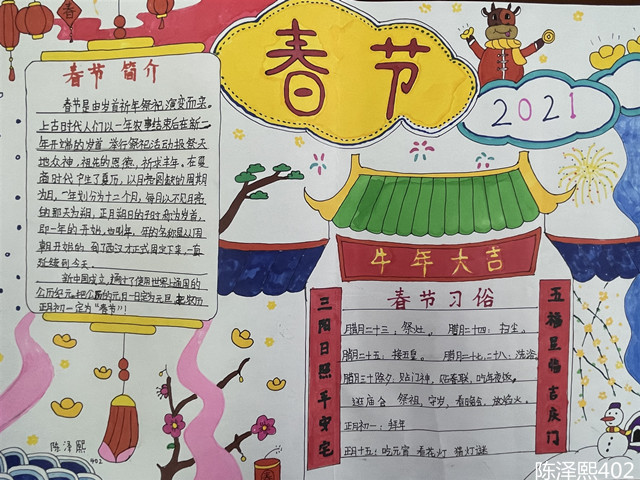 春节
2021
春节 简介
春节是由岁首祈年祭祀演变而来。
上古时代人们以一年农事结束后在新一
年开端的岁首 举行祭祀活动报祭天
地众神,祖先的恩德,祈求丰年。在夏
商时代产生了夏历,以月亮圆缺的周期
为月,一年划分为十二个月,每月以不见月亮
的那天为朔,正月朔日的子时称为岁首,
即一年的开始,也叫年,年的名称是从周
朝开始的 到了西汉才正式固定下来,一直
延续到今天
新中国成立,使用世界上通用的
公历纪元,把公历的元月一日定为元旦,农历
正月初一定为“春节”!
牛年大吉
三阳日照平安宅
五福星临吉庆门
春节习俗
腊月二十三,祭灶。 腊月二十四:扫尘。
腊月二十五:接玉皇。 腊月二十七,二十八:洗浴。
腊月三十除夕:贴门神,贴春联,吃年夜饭。
逛庙会 祭祖,守岁,看晚会,放焰火。
正月初一:拜年
正月十五:吃元宵 看花灯 猜灯谜
陈泽熙
402
陈泽熙402